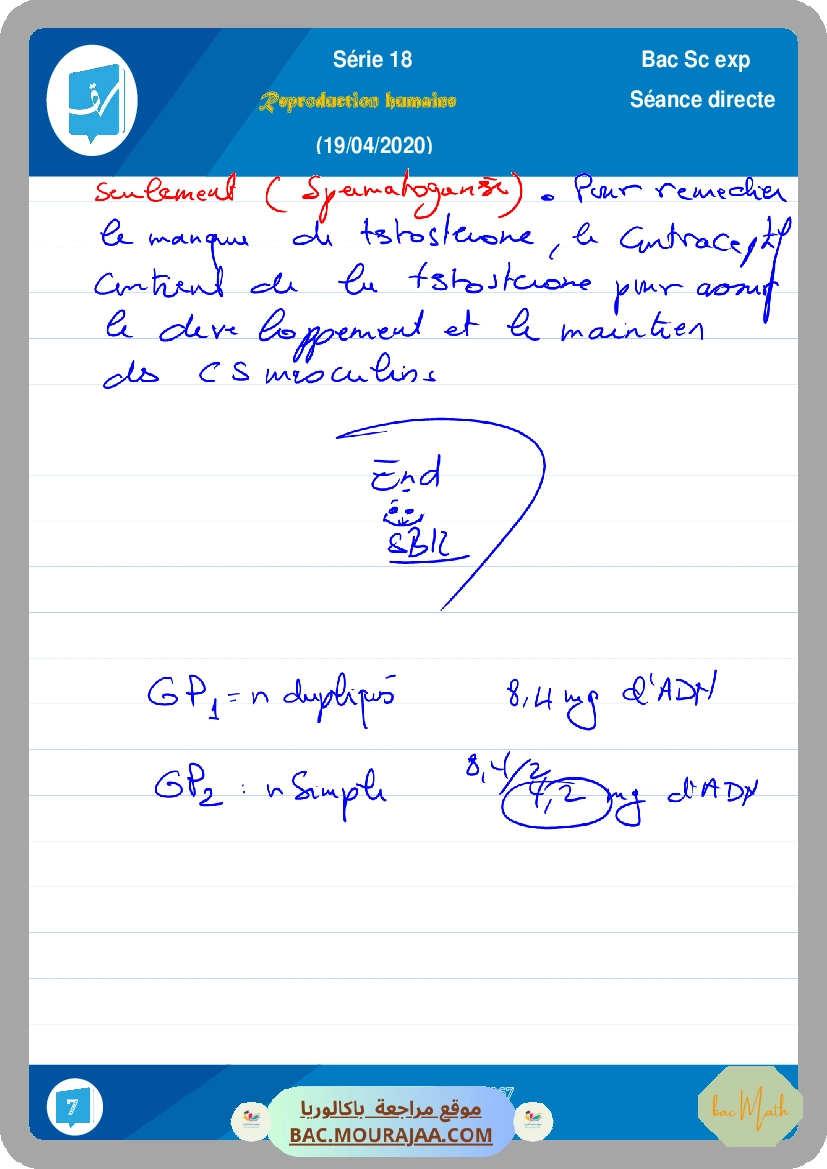 Série 18
Bac Sc exp
Reproduction humaine
Séance directe
(19/04/2020)
seulement (Spermatogenèse). Pour remedier
le manque de testosterone, le Contraceptif
Contient de la testosterone pour assurer
le developpement et le maintien
des CS masculins
End
SBK
GP1 = n dupliqués 8,4 mg d'ADN
GP2 : n Simple 8,4/2 4,2 mg d'ADN
7
موقع مراجعة باكالوريا
BAC.MOURAJAA.COM
bac Math